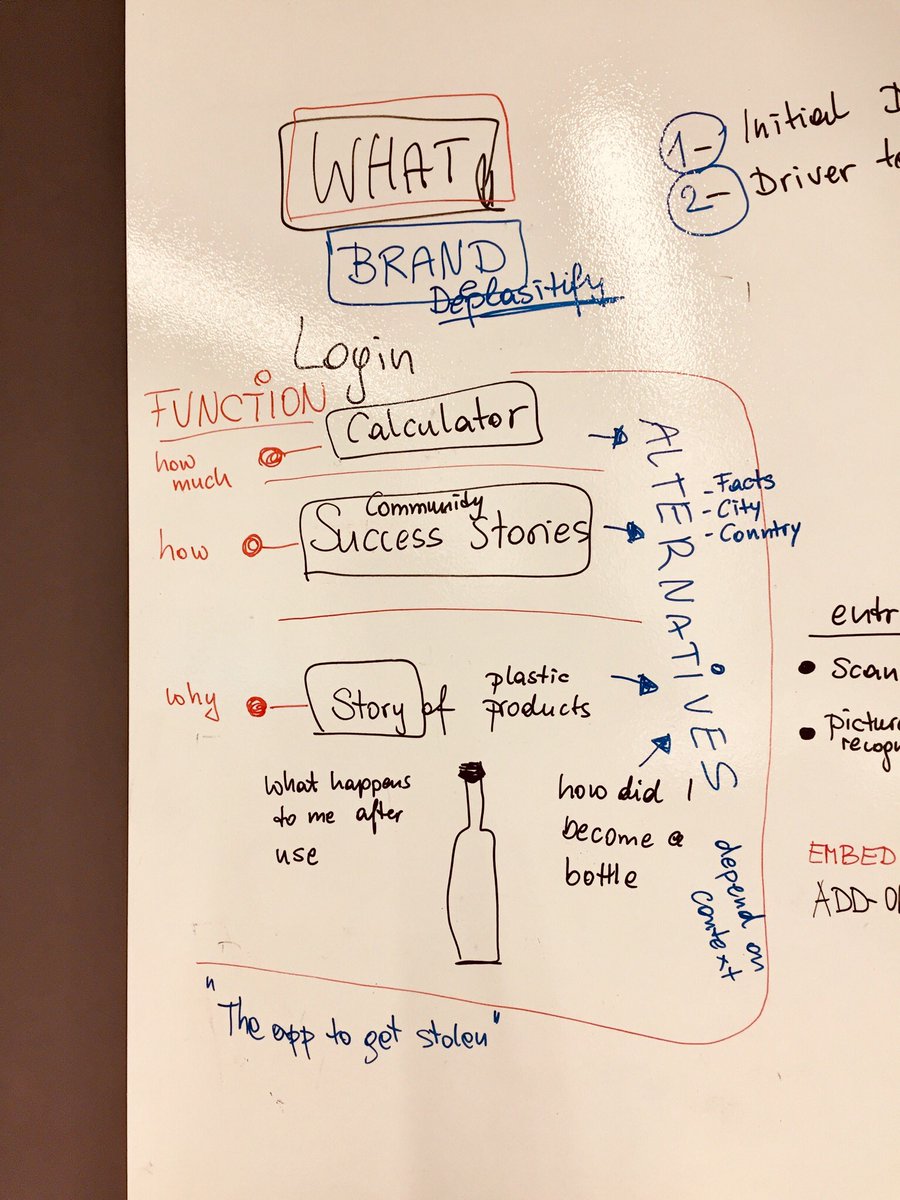 WHAT
BRAND
Deplasitify
1- Initial
2- Driver
Login
FUNCTION
how
much
Calculator
how
Community
Success Stories
why
Story of plastic
products
what happens
to me after
use
how did I
become a
bottle
ALTERNATIVES
- Facts
- City
- Country
depend on
context
"The app to get stolen"
entr
• Scan
• picture
recogn
EMBED
ADD-O